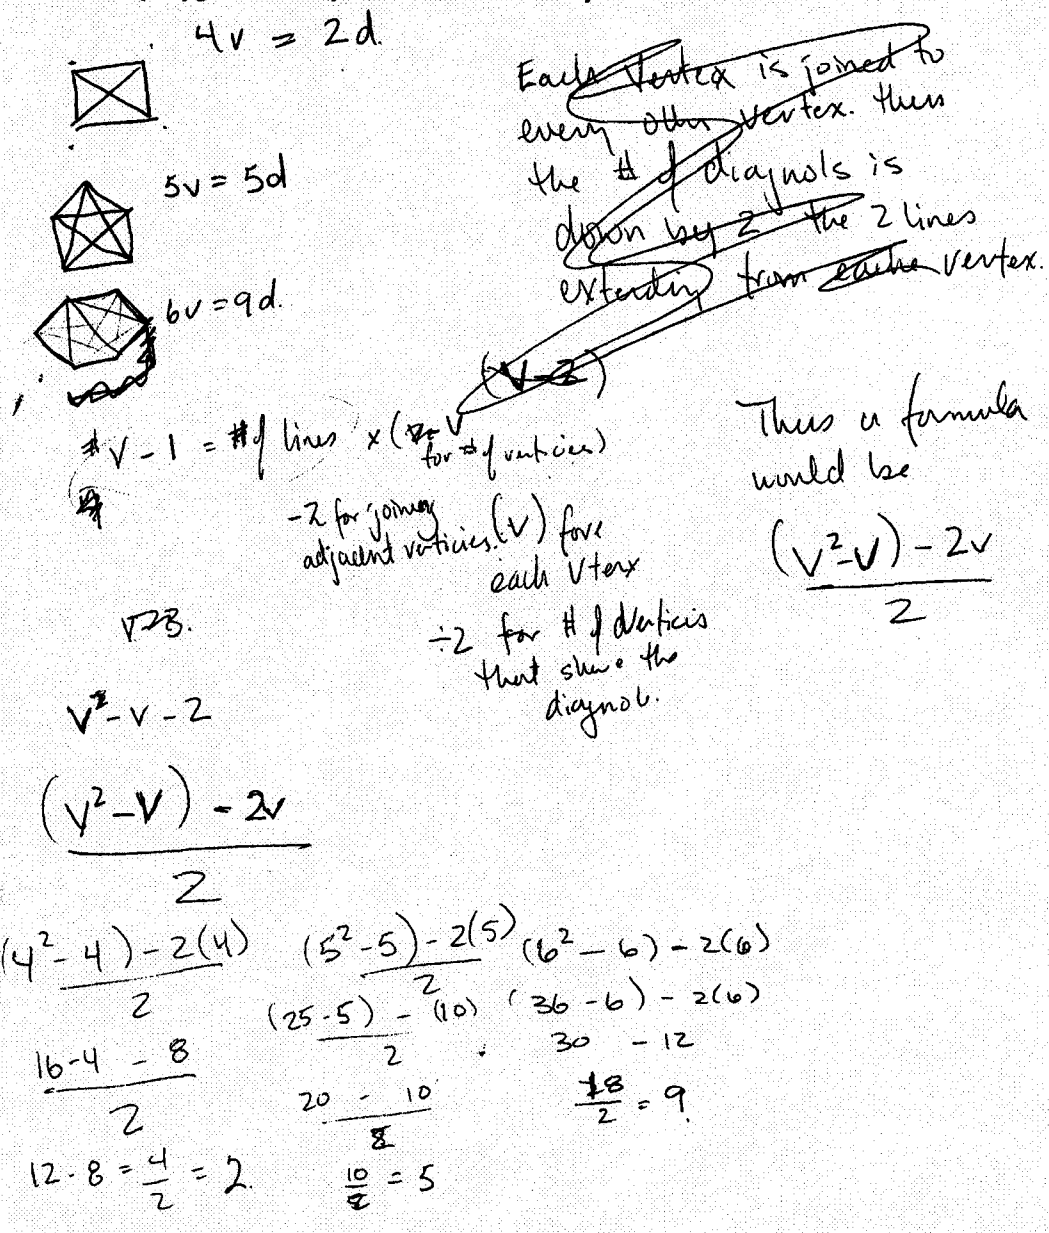 4v = 2d.
5v = 5d
6v = 9d.
Each Vertex is joined to
every other vertex. Thus
the # of diagnols is
down by 2 the 2 lines
extending from vertex.
(V-2)
V - 1 = # of lines x (
for # of verticies)
-2 for joining
adjacent verticies. (V) for
each
÷2 for # of
that share the
diagnol.
Thus a formula
would be
(V²-V) - 2v
2
V² - V - 2
(V² - V) - 2v
2
(4² - 4) - 2(4)
2
16-4 - 8
2
12 - 8 = 4 = 2.
2
(5² - 5) - 2(5)
2
(25-5) - (10)
2
20 - 10
2
10 = 5
2
(6² - 6) - 2(6)
(36 - 6) - 2(6)
30 - 12
18 = 9.
2